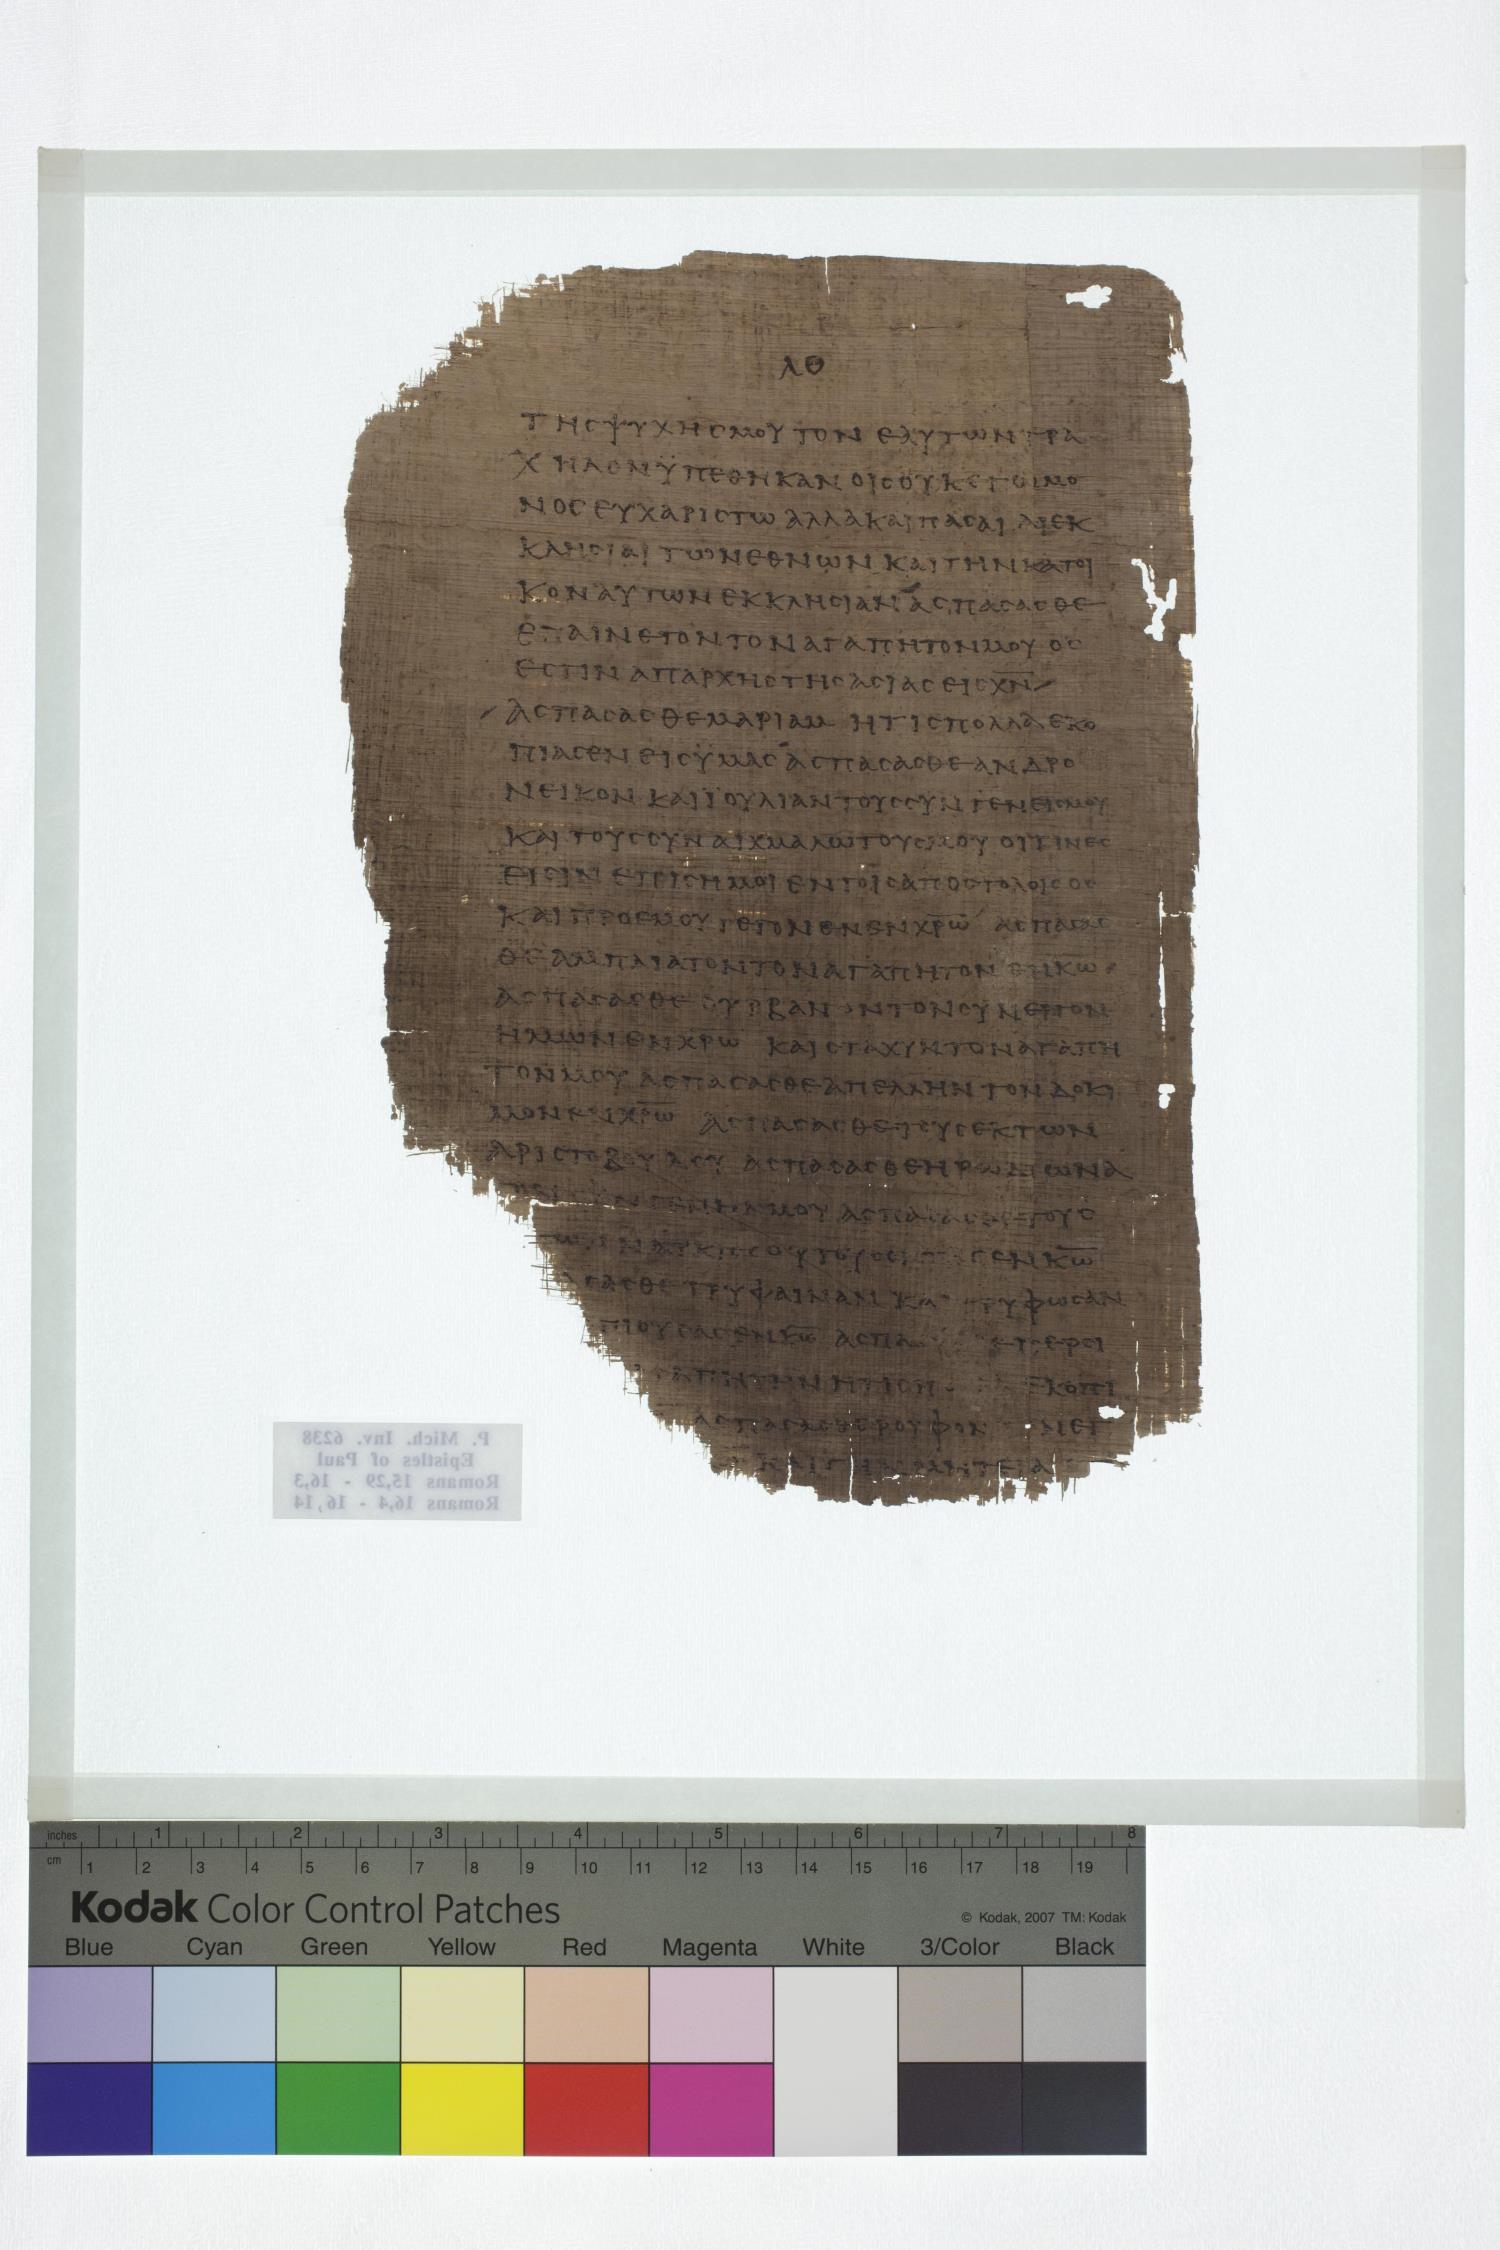 ΛΘ
ΤΗСΨΥΧΗСΜΟΥΤΟΝΕΑΥΤΩΝΤΡΑ
ΧΗΛΟΝΫΠΕΘΗΚΑΝΟΙСΟΥΚΕΓΩΜΟ
ΝΟСΕΥΧΑΡΙСΤΩΑΛΛΑΚΑΙΠΑСΑΙΑΙΕΚ
ΚΛΗСΙΑΙΤΩΝΕΘΝΩΝΚΑΙΤΗΝΚΑΤΟΙ
ΚΟΝΑΥΤΩΝΕΚΚΛΗСΙΑΝΑСΠΑСΑСΘΕ
ΕΠΑΙΝΕΤΟΝΤΟΝΑΓΑΠΗΤΟΝΜΟΥΟС
ΕСΤΙΝΑΠΑΡΧΗСΤΗСΑСΙΑСΕΙСΧ̅Ν̅
ΑСΠΑСΑСΘΕΜΑΡΙΑΜΗΤΙСΠΟΛΛΑΕΚΟ
ΠΙΑСΕΝΕΙСΫΜΑСΑСΠΑСΑСΘΕΑΝΔΡΟ
ΝΕΙΚΟΝΚΑΙΪΟΥΛΙΑΝΤΟΥССΥΝΓΕΝΕΙСΜΟΥ
ΚΑΙΤΟΥССΥΝΑΙΧΜΑΛΩΤΟΥСΜΟΥΟΙΤΙΝΕС
ΕΙСΙΝΕΠΙСΗΜΟΙΕΝΤΟΙСΑΠΟСΤΟΛΟΙСΟС
ΚΑΙΠΡΟΕΜΟΥΓΕΓΟΝΕΝΕΝΧ̅Ρ̅Ω̅ΑСΠΑСΑС
ΘΕΑΜΠΛΙΑΤΟΝΤΟΝΑΓΑΠΗΤΟΝΕΝΚ̅Ω̅
ΑСΠΑСΑСΘΕ ΤΟΝСΥΝΕΡΓΟΝ
ΗΜΩΝΕΝΧ̅Ρ̅Ω̅ΚΑΙСΤΑΧΥΝΤΟΝΑΓΑΠΗ
ΤΟΝΜΟΥΑСΠΑСΑСΘΕΑΠΕΛΛΗΝΤΟΝΔΟΚΙ
ΜΟΝΕΝΧ̅Ρ̅Ω̅ΑСΠΑСΑСΘΕΤΟΥСΕΚΤΩΝ
ΑΡΙСΤΟΒΟΥΛΟΥΑСΠΑСΑСΘΕΗΡΩΔΙΩΝΑ
ΜΟΥΑСΠΑСΑСΘΕΤΟΥС
ΝΑΡΚΙССΟΥΤΟΥС ΕΝΚ̅Ω̅
СΑСΘΕΤΡΥΦΑΙΝΑΝΚΑΙΤΡΥΦΩСΑΝ
ΠΙΟΥСΑСΕΝΚ̅Ω̅ΑСΠΑ ΠΕΡСΙ
ΑΠΗΤΗΝΗΤΙСΠ ΕΚΟΠΙ
ΑСΠΑСΑСΘΕΡΟΥΦΟΝ
ΚΑΙΤΗΝ
P. Mich. Inv. 6238
Epistles of Paul
Romans 15,29 - 16,3
Romans 16,4 - 16,14
inches 1 2 3 4 5 6 7 8
cm 1 2 3 4 5 6 7 8 9 10 11 12 13 14 15 16 17 18 19
Kodak Color Control Patches
© Kodak, 2007 TM: Kodak
Blue Cyan Green Yellow Red Magenta White 3/Color Black